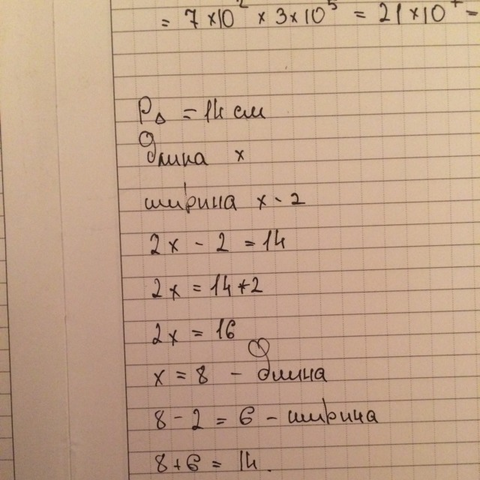 = 7×10² × 3×10⁵ = 21×10⁷ =
P△ = 14 см
Длина x
ширина x - 2
2x - 2 = 14
2x = 14+2
2x = 16
x = 8 - длина
8 - 2 = 6 - ширина
8+6 = 14.